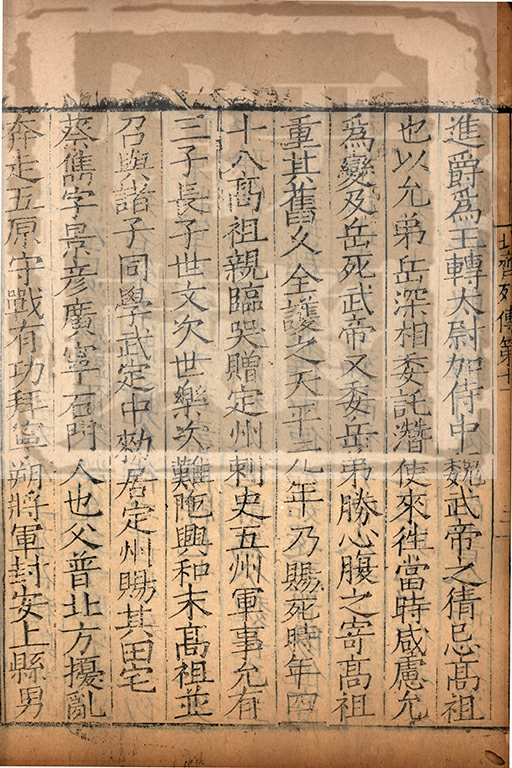 進爵爲王轉太尉加侍中魏武帝之猜忌高祖
也以允弟岳深相委託潛使來往當時咸慮允
爲變及岳死武帝又委岳弟勝心腹之寄高祖
重其舊久全護之天平元年乃賜死時年四
十八高祖親臨哭贈定州刺史五州軍事允有
三子長子世文次世樂次難陁興和末高祖並
召與諸子同學武定中勑居定州賜其田宅
蔡儁字景彦廣寧石門人也父普北方擾亂
奔走五原守戰有功拜寧朔將軍封安上縣男